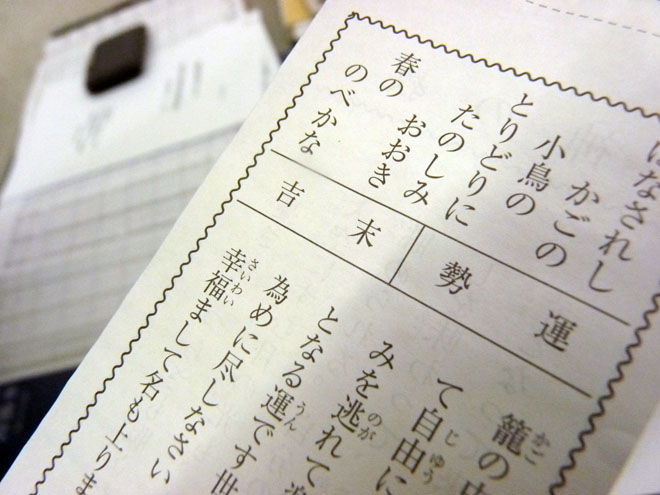 はなされし
かごの
小鳥の
とりどりに
たのしみ
おおき
春の
のべかな
運勢
末吉
籠の
て自由に
みを逃れて
となる運です世
為めに尽しなさい
幸福まして名も上りま